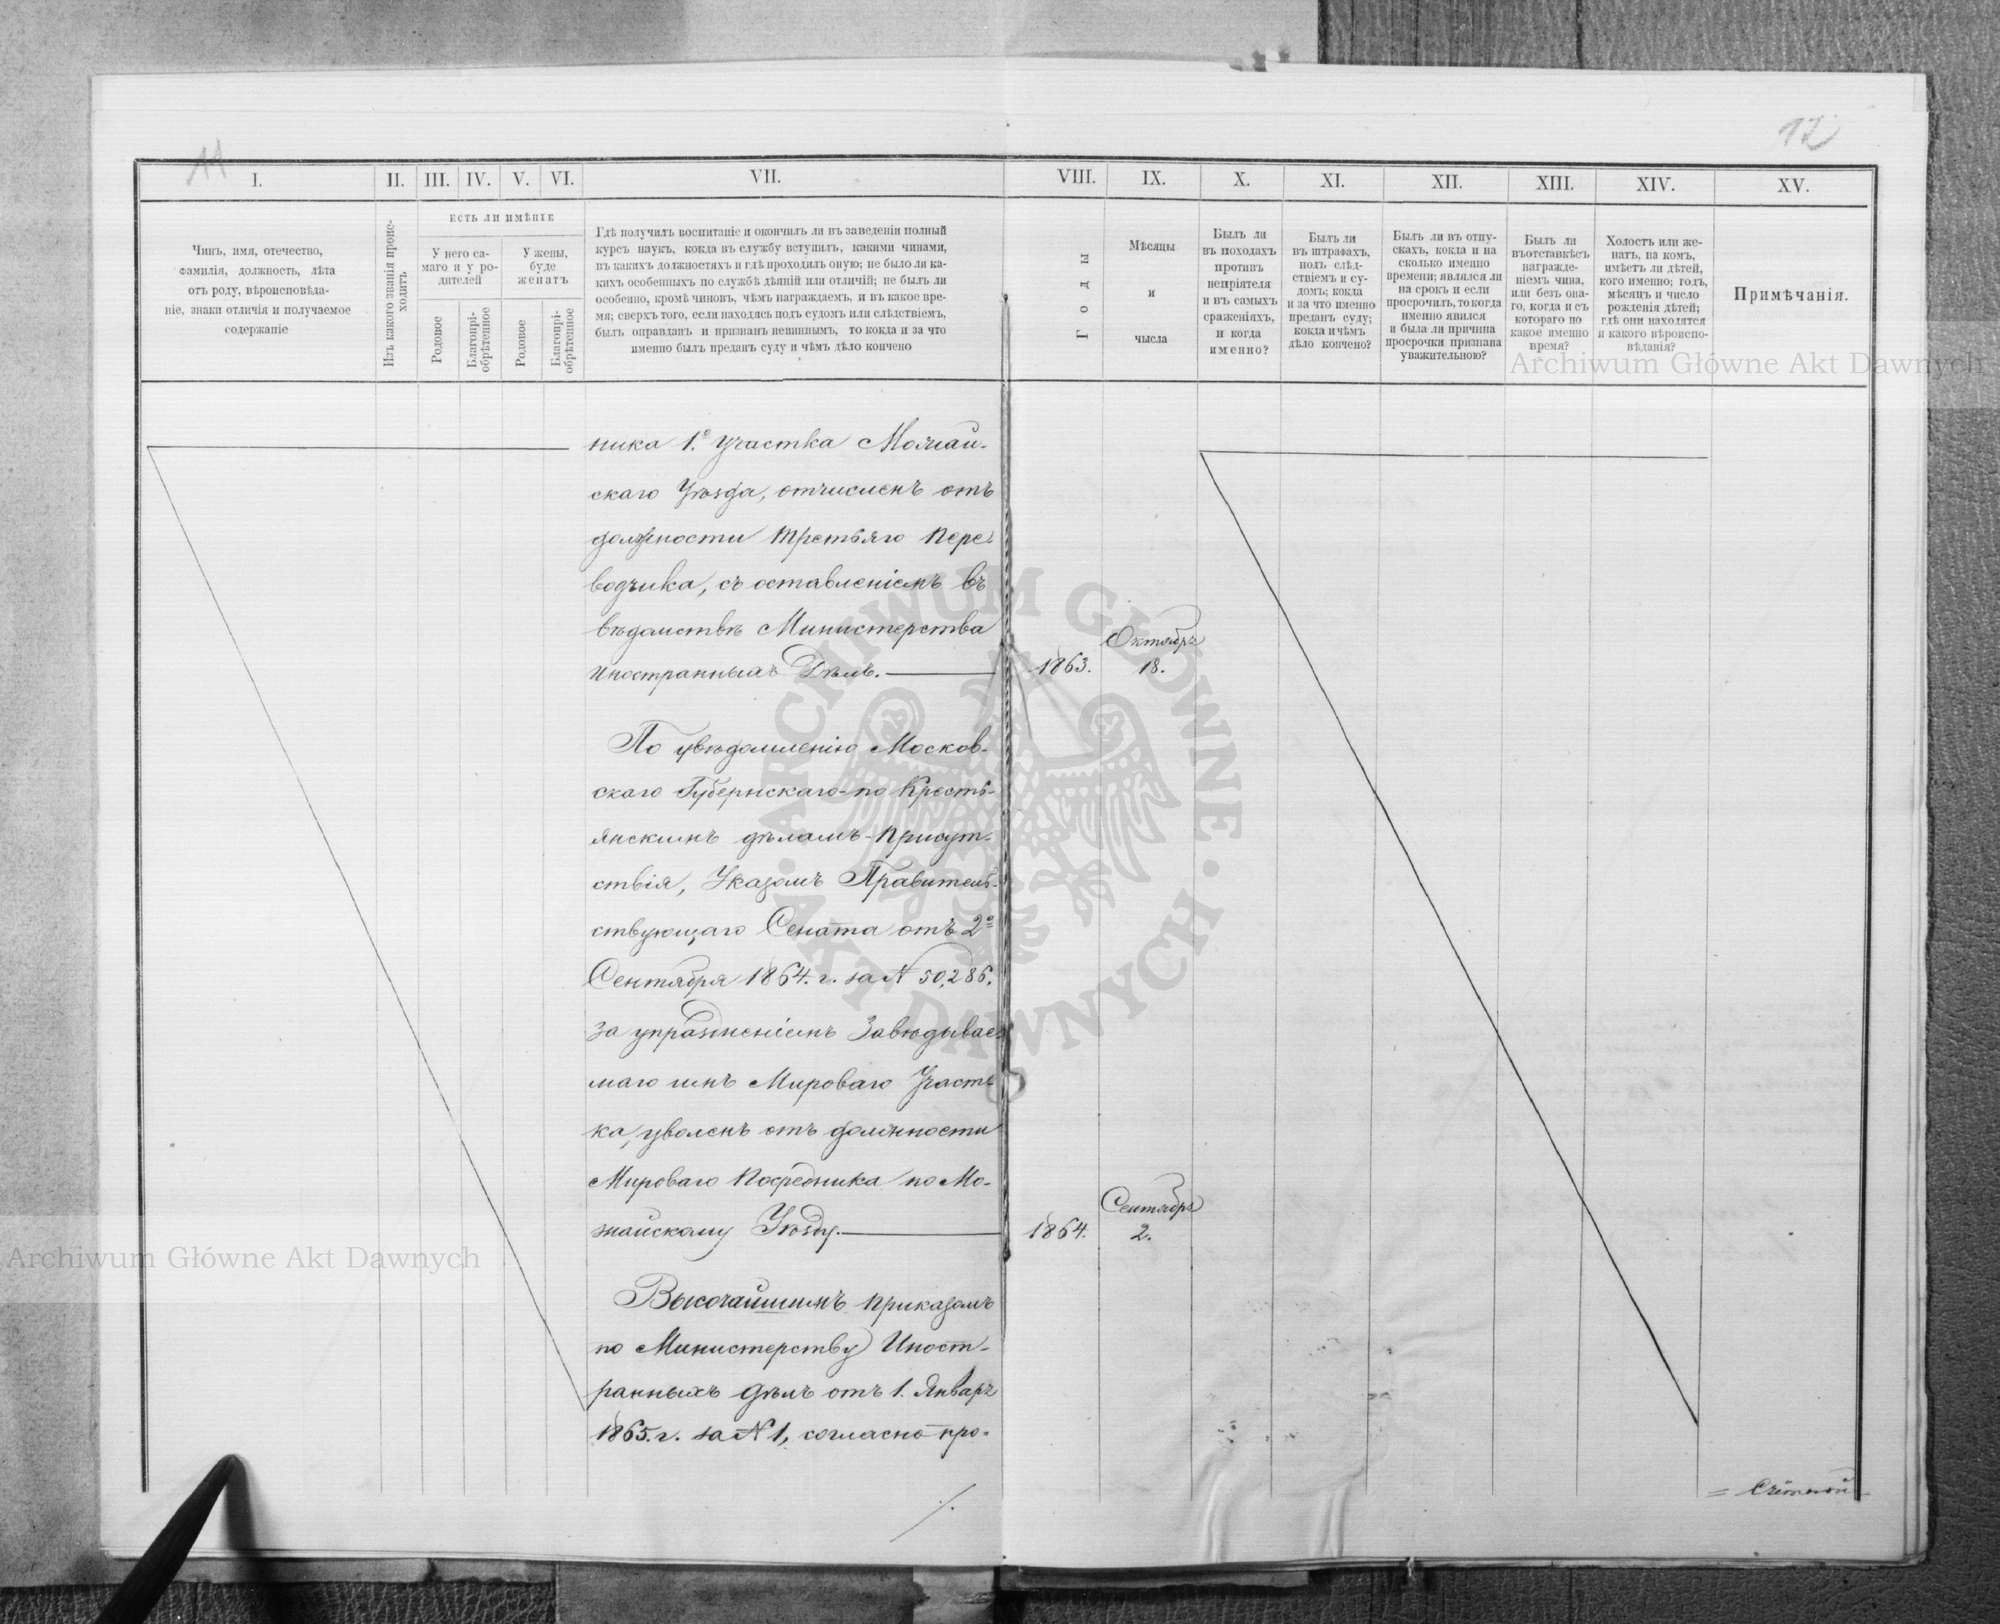 11
12
I.
II.
III.
IV.
V.
VI.
VII.
VIII.
IX.
X.
XI.
XII.
XIII.
XIV.
XV.
Чинъ, имя, отечество,
фамилія, должность, лѣта
отъ роду, вѣроисповѣда-
ніе, знаки отличія и получаемое
содержаніе
Изъ какого званія проис-
ходитъ
ЕСТЬ ЛИ ИМѢНІЕ
У него са-
маго и у ро-
дителей
У жены,
буде
женатъ
Родовое
Благопрі-
обрѣтенное
Родовое
Благопрі-
обрѣтенное
Гдѣ получилъ воспитаніе и окончилъ ли въ заведеніи полный
курсъ наукъ, когда въ службу вступилъ, какими чинами,
въ какихъ должностяхъ и гдѣ проходилъ оную; не было ли ка-
кихъ особенныхъ по службѣ дѣяній или отличій; не былъ ли
особенно, кромѣ чиновъ, чѣмъ награждаемъ, и въ какое вре-
мя; сверхъ того, если находясь подъ судомъ или слѣдствіемъ,
былъ оправданъ и признанъ невиннымъ, то когда и за что
именно былъ преданъ суду и чѣмъ дѣло кончено
Годы
Мѣсяцы
и
числа
Былъ ли
въ походахъ
противъ
непріятеля
и въ самыхъ
сраженіяхъ,
и когда
именно?
Былъ ли
въ штрафахъ,
подъ слѣд-
ствіемъ и су-
домъ; когда
и за что именно
преданъ суду;
когда и чѣмъ
дѣло кончено?
Былъ ли въ отпу-
скахъ, когда и на
сколько именно
времени; являлся ли
на срокъ и если
просрочилъ, то когда
именно явился
и была ли причина
просрочки признана
уважительною?
Былъ ли
въ отставкѣ съ
награжде-
ніемъ чина,
или безъ она-
го, когда и съ
котораго по
какое именно
время?
Холостъ или же-
натъ, на комъ,
имѣетъ ли дѣтей,
кого именно; годъ,
мѣсяцъ и число
рожденія дѣтей;
гдѣ они находятся
и какого вѣроиспо-
вѣданія?
Примѣчанія.
Archiwum Główne Akt Dawnych
ника 1го участка Можай-
скаго Уѣзда, отчисленъ отъ
должности третьяго пере-
водчика, съ оставленіемъ въ
вѣдомствѣ Министерства
Иностранныхъ Дѣлъ.
1863.
Октября
18.
По увѣдомленію Москов-
скаго Губернскаго по кресть-
янскимъ дѣламъ Присут-
ствія, Указомъ Правитель-
ствующаго Сената отъ 2го
Сентября 1864. г. за N 50,286,
за упраздненіемъ Завѣдывае-
маго имъ Мироваго Участ-
ка, уволенъ отъ должности
Мироваго Посредника по Мо-
жайскому Уѣзду.
1864.
Сентября
2.
Высочайшимъ приказомъ
по Министерству Иност-
ранныхъ дѣлъ отъ 1. Января
1865. г. за N 1, согласно про-
ARCHIWUM GŁÓWNE · AKT DAWNYCH ·
Archiwum Główne Akt Dawnych